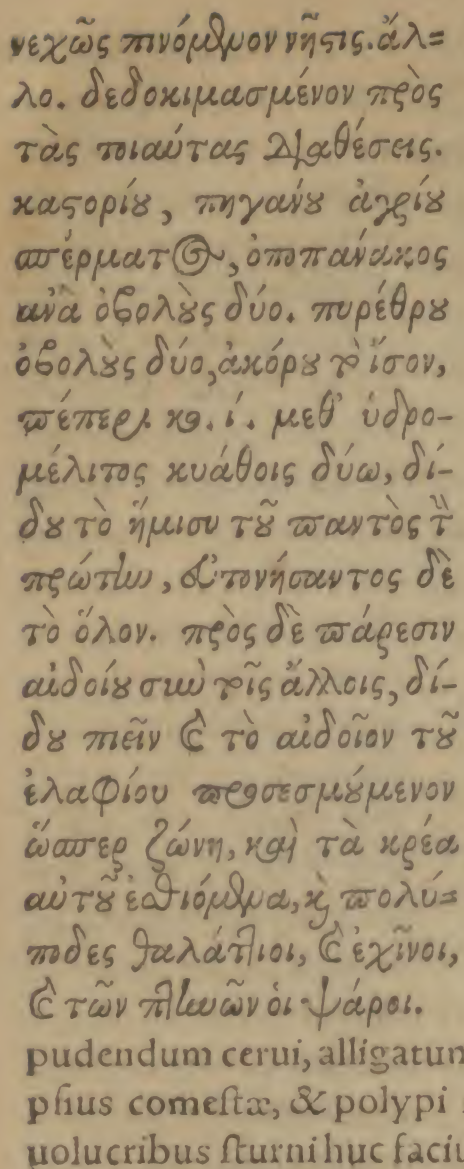 νεχῶς πινόμενον νῆστις. ἄλ=
λο. δεδοκιμασμένον πρὸς
τὰς τοιαύτας διαθέσεις.
καστορίου, πηγάνου ἀγρίου
σπέρματος, ὀποπάνακος
ἀνὰ ὀβολοὺς δύο. πυρέθρου
ὀβολοὺς δύο, ἀκόρου τὸ ἴσον,
πέπερι κο. ί. μεθ' ὑδρο-
μέλιτος κυάθοις δύω, δί-
δου τὸ ἥμισυ τοῦ παντὸς τὴν
πρώτην, εὐτονήσαντος δὲ
τὸ ὅλον. πρὸς δὲ πάρεσιν
αἰδοίου σὺν τοῖς ἄλλοις, δί-
δου πιεῖν καὶ τὸ αἰδοῖον τοῦ
ἐλαφίου προσεσμούμενον
ὥσπερ ζώνη, καὶ τὰ κρέα
αὐτοῦ ἐσθιόμενα, καὶ πολύ=
ποδες θαλάττιοι, καὶ ἐχῖνοι,
καὶ τῶν πτηνῶν οἱ ψάροι.
pudendum cerui, alligatum
psius comestæ, & polypi
uolucribus sturni huc faciu